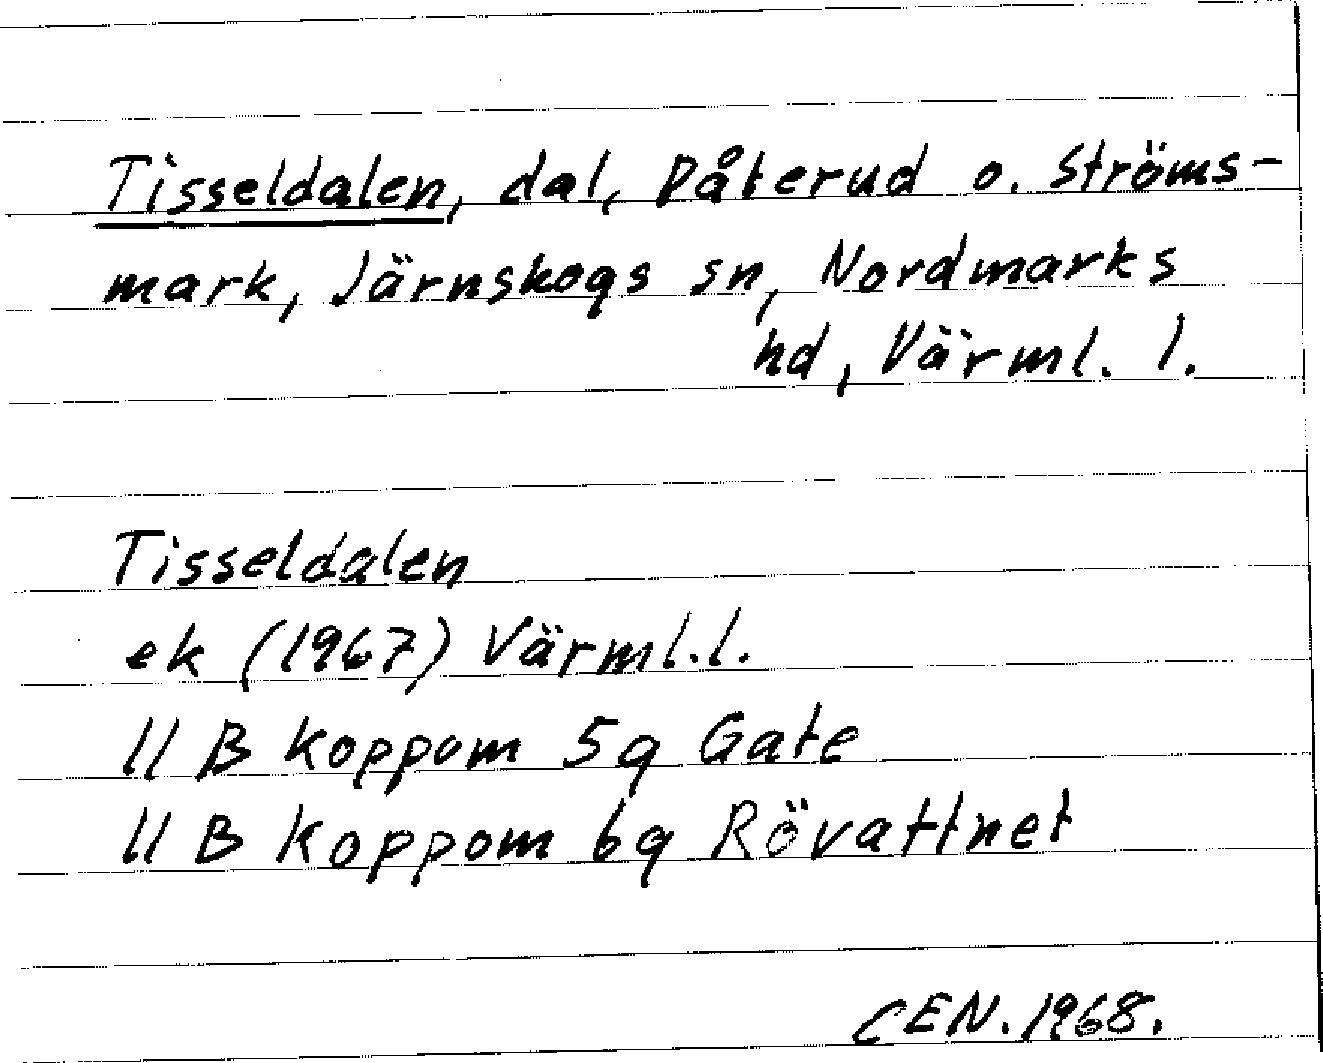 Tisseldalen, dal, Påterud o. Ströms-
mark, Järnskogs sn, Nordmarks
hd, Värml. l.
Tisseldalen
ek (1967) Värml.l.
11 B Koppom 5q Gate
11 B Koppom 6q Rövattnet
CEN. 1968.